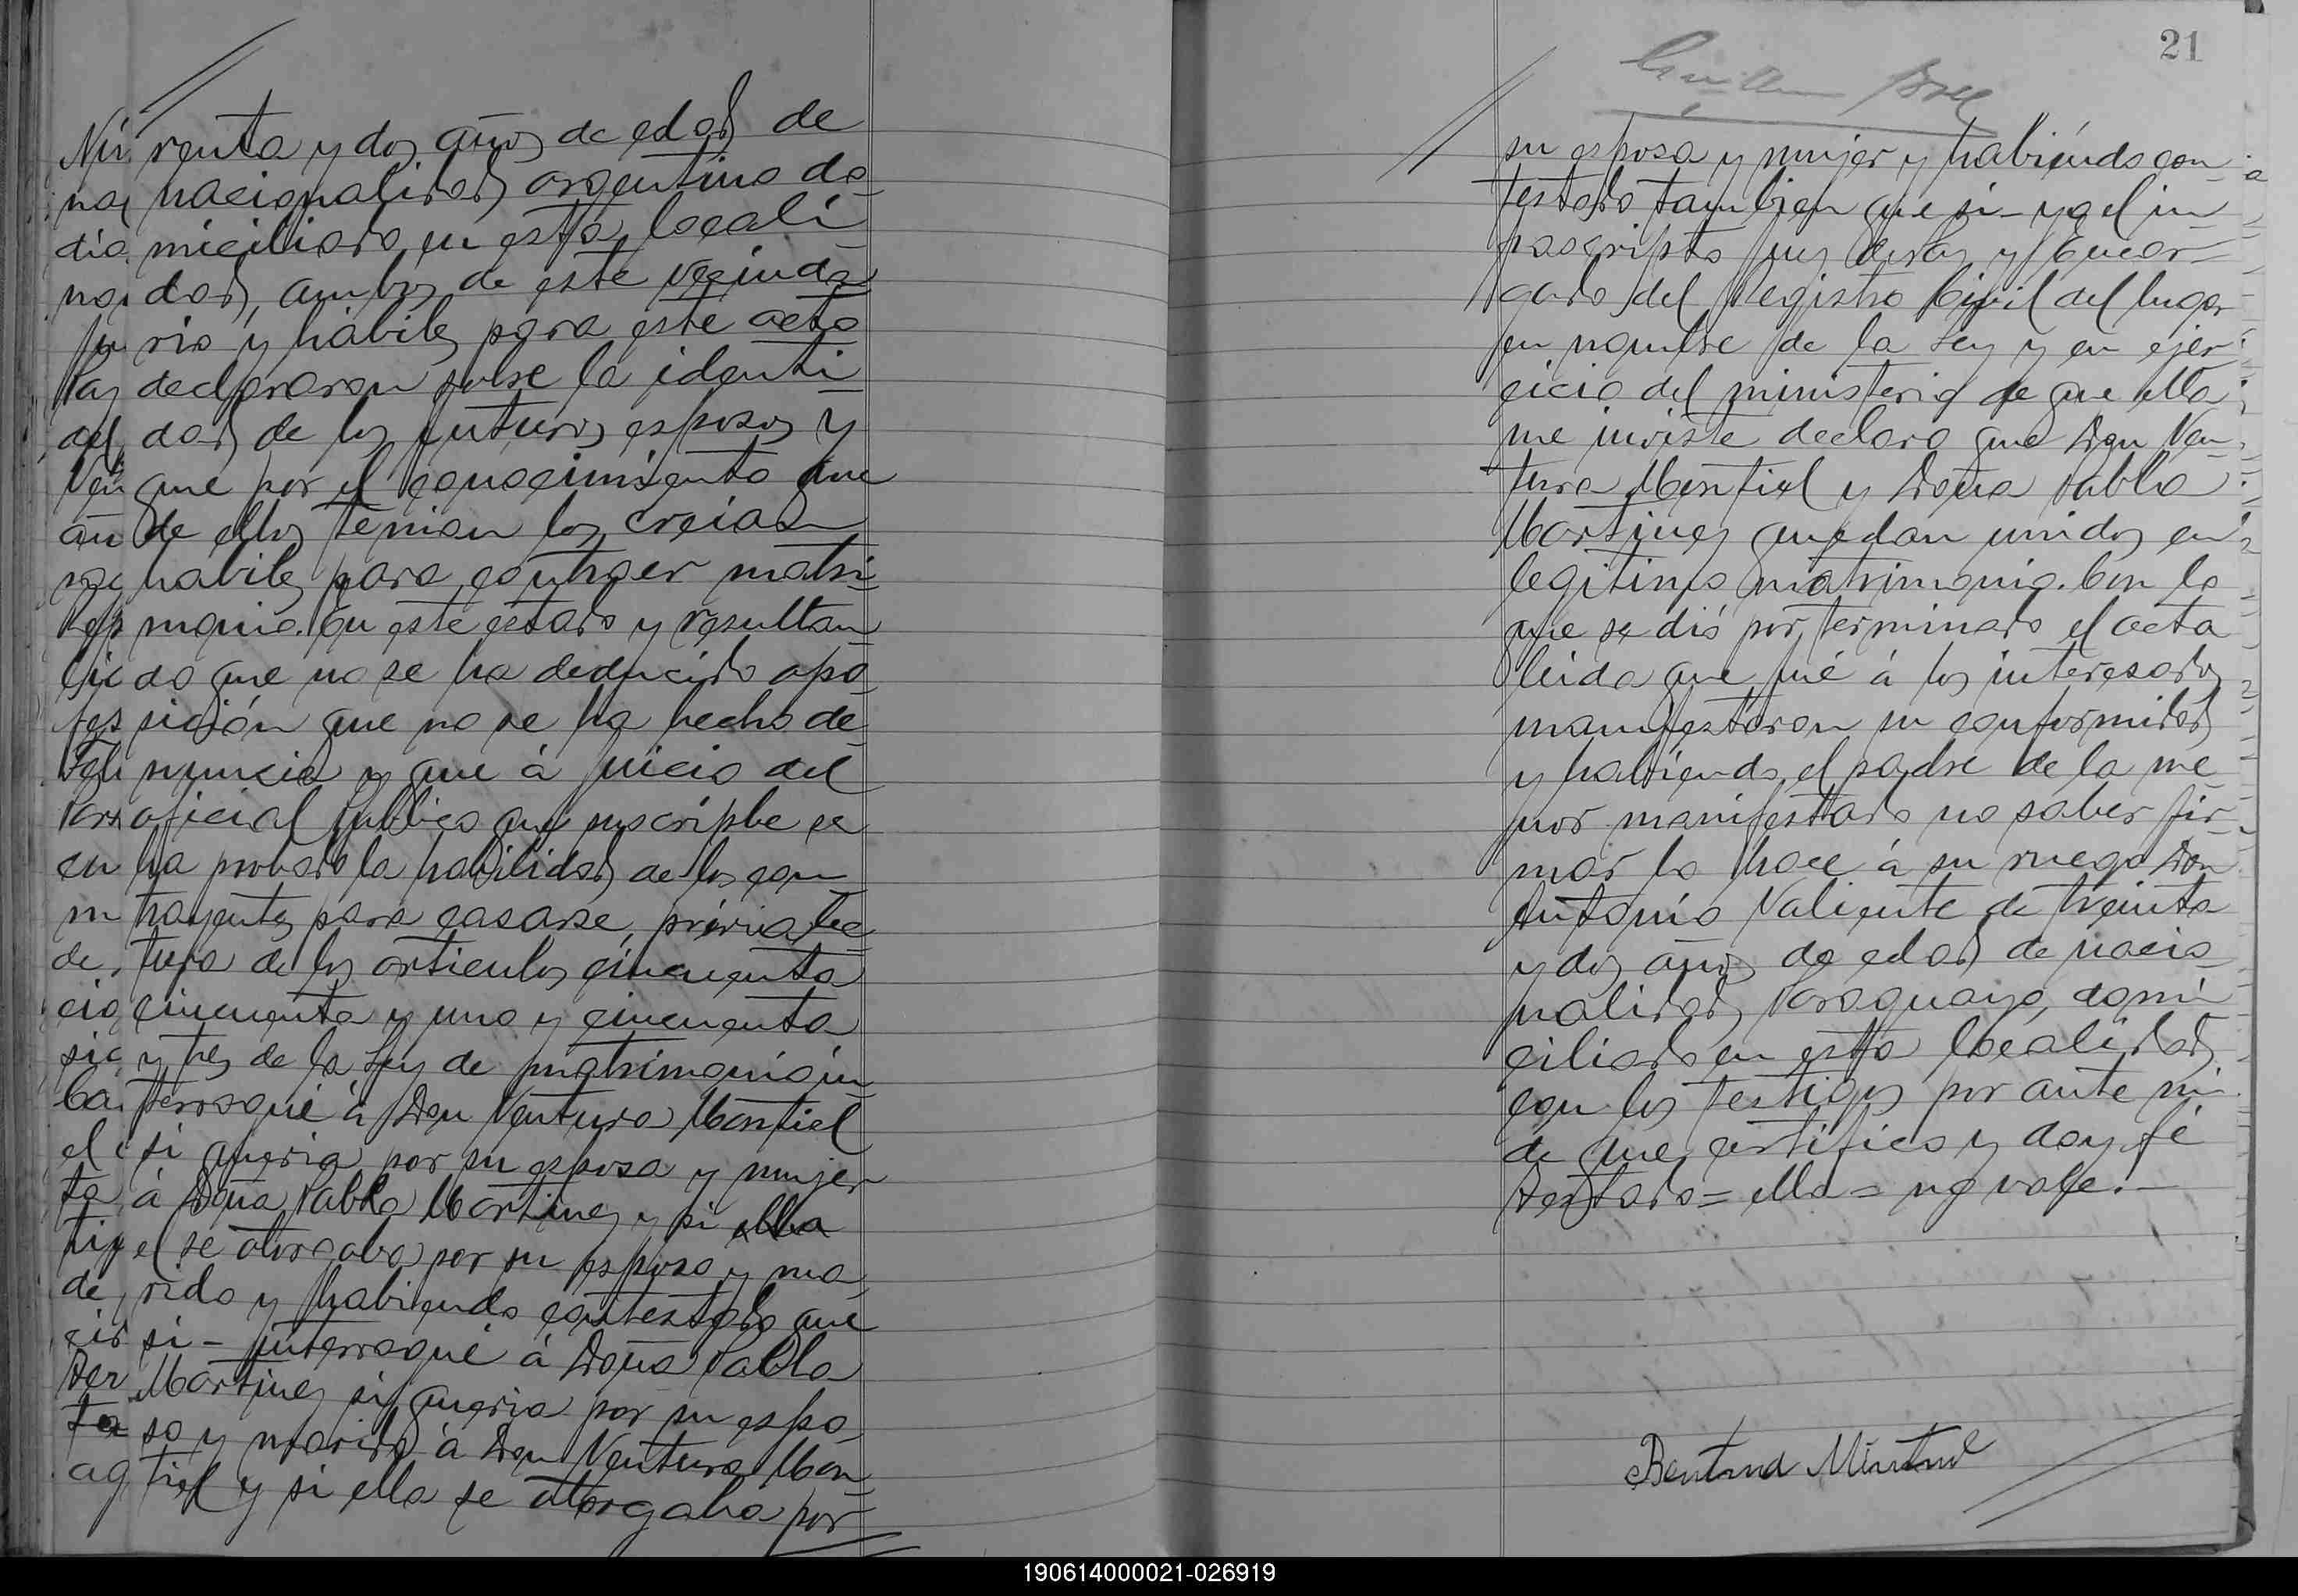 renta y dos años de edad de
nacionalidad argentino do
miciliado en esta locali
dad, ambos de este vecinda
rio y hábiles para este acto
declararon sobre la identi
dad de los futuros esposos y
que por el conocimiento que
de ellos tenian los creian
habiles para contraer matri
monio. En este estado y resultan
do que no se ha deducido opo
sición que no se ha hecho de
nuncia y que á juicio del
oficial publico que suscripbe se
ha probado la habilidad de los con
trayentes para casarse, prévia lec
tura de los articulos cincuenta
cincuenta y uno y cincuenta
y tres de la Ley de matrimonio in
terrogué á Don Ventura Montiel
si queria por su esposa y mujer
á Doña Pabla Martinez y si ella
el se otorgaba por su esposo y ma
rido y habiendo contestado que
si - interrogué á Doña Pabla
Martinez si queria por su espo
so y marido á Don Ventura Mon
tiel y si ella se otorgaba por
21
su esposa y mujer y habiendo con
testado tambien que si - yo el in
frascripto Juez de Paz y Encar
gado del Registro Civil del lugar
en nombre de la Ley y en ejer
cicio del ministerio de que ella
me inviste declaro que Don Ven
tura Montiel y Doña Pabla
Martinez quedan unidos en
legitimo matrimonio. Con lo
que se dió por terminado el acta
leida que fué á los interesados
manifestaron su conformidad
y habiendo el padre de la me
nor manifestado no saber fir
mar lo hace á su ruego Don
Antonio Valiente de treinta
y dos años de edad de nacio
nalidad Paraguayo, domi
ciliado en esta localidad
con los testigos por ante mi
de que certifico y doy fé
Testado = ella = no vale. -
190614000021-026919